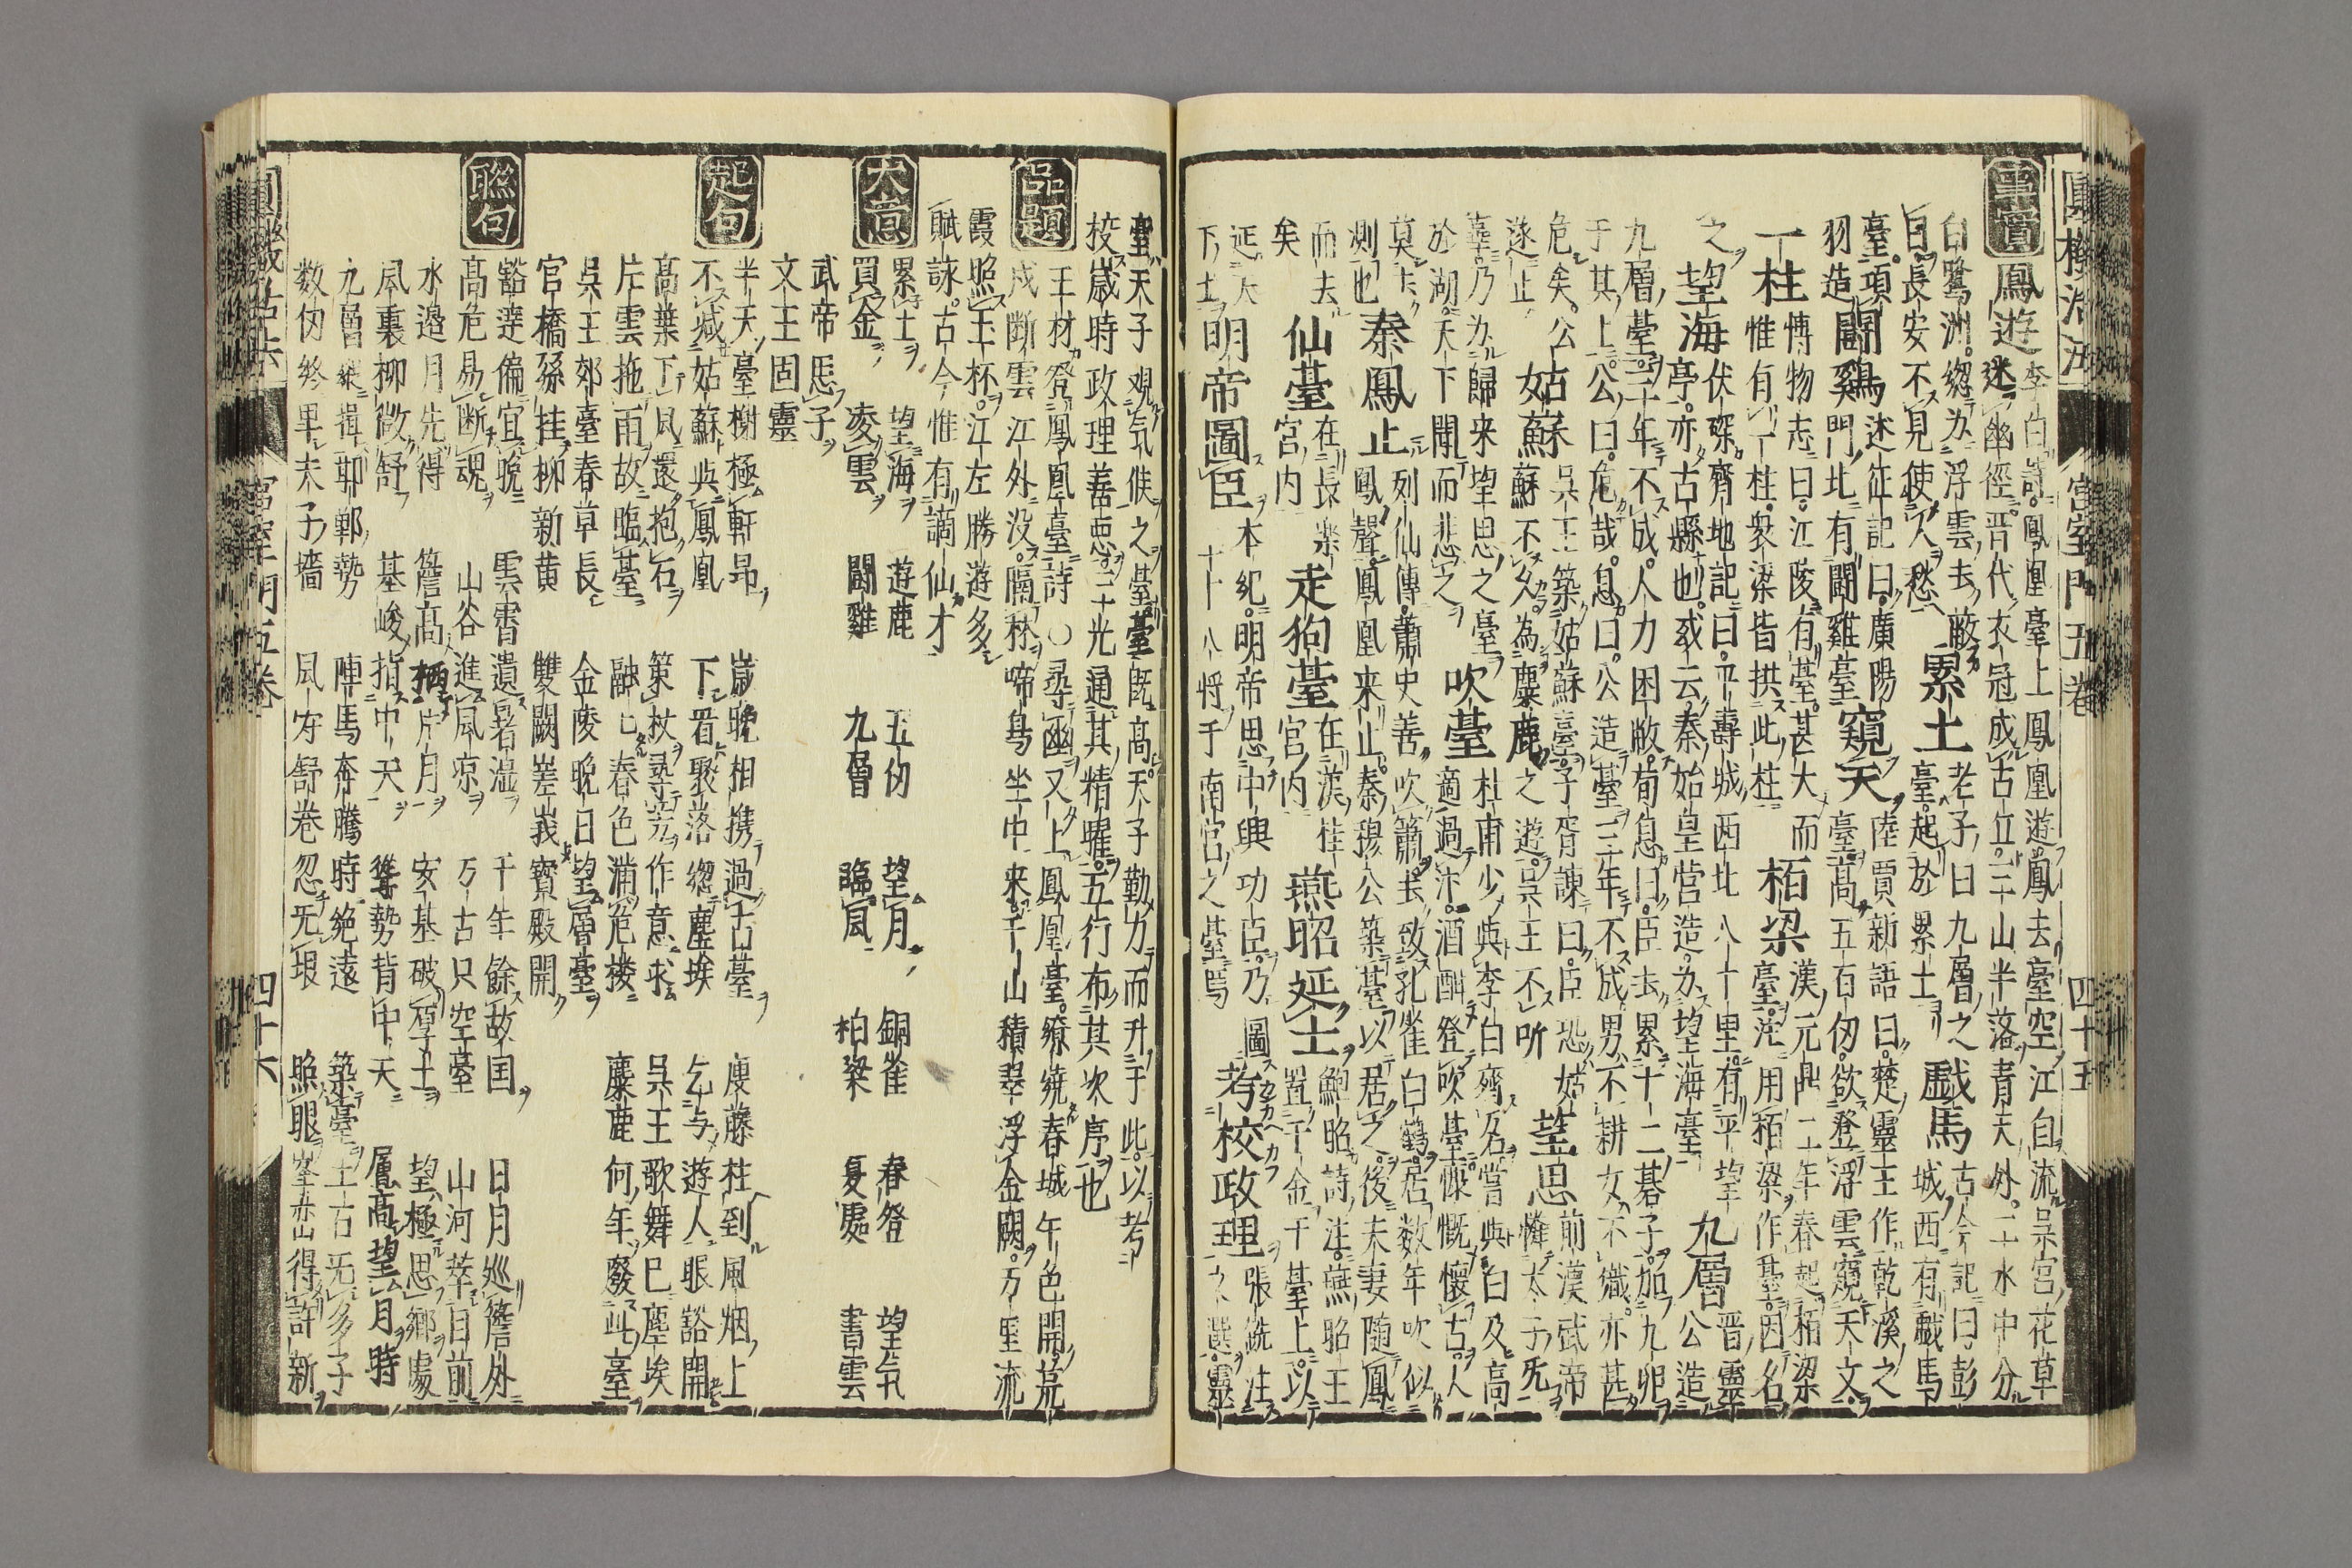 圓機活法 宮室門五卷 四十五
事實
鳳遊 李白詩鳳凰臺上鳳凰遊鳳去臺空江自流呉宮花草
迷幽徑晋代衣冠成古丘三山半落青天外二水中分
白鷺洲緫为浮雲去蔽
日長安不見使人愁 累土 老子曰九層之
臺起於累土 戯馬 古今記曰彭
城西有戯馬
臺項
羽造 闘鷄 述征記曰廣陽
門北有闘雞臺 窺天 陸賈新語曰楚靈王作乾溪之
臺高五百仞欲登浮雲窺天文
一柱 博物志曰江陵有臺甚大而
惟有一柱衆梁皆拱此柱 栢梁 漢元鼎二年春起栢梁
臺注用栢梁作臺因名
之 望海 伏琛齊地記曰平壽城西北八十里有平望
亭亦古縣也或云秦始皇営造为望海臺 九層 晋靈
公造
九層臺三年不成人力困敝荀息曰臣去累十二碁子加九卵
于其上公曰危哉息曰公造臺三年不成男不耕女不織亦甚
危矣公
遂止 姑蘇 呉王築姑蘇臺子胥諫曰臣恐姑
蘇不久為麋鹿之遊呉王不听 望思 前漢武帝
憐太子旡
辜乃为歸来望思之臺
於湖天下聞而悲之 吹臺 杜甫少與李白齊名嘗與白及高
適過汴酒酣登吹臺慷慨懷古人
莫
測也 秦鳳止 列仙傳蕭史善吹簫致孔雀白鶴居数年吹似
鳳聲鳳凰来止秦穆公築臺以居之後夫妻随鳳
而去
矣 仙臺 在長楽
宮内 走狗臺 在漢桂
宮内 燕昭延士 鮑昭詩注燕昭王
置千金于臺上以
延天
下士 明帝圖臣 本紀明帝思中興功臣乃圖
二十八将于南宮之臺焉 考校政理 張銑注
之選靈
靈天子观気候之臺臺既高天子勤力而升于此以考
校歳時政理善悪三光通其精曜五行布其次序也
品題
王材登鳳凰臺詩 ○尋幽又上鳳凰臺繚繞春城午色開荒
戍断雲江外没隔林啼鳥坐中来千山積翠浮金闕万里流
霞照玉杯江左勝遊多
賦詠古今惟有謫仙才
大意
累土 望海 遊鹿 五仞 望月 銅雀 春登 望気
買金 凌雲 闘雞 九層 臨風 柏梁 夏處 書雲
武帝思子
文王固靈
起句
半天臺榭極軒昻 歳晩相携過古臺 廋藤柱到風烟上
不减姑蘇與鳳凰 下看聚落緫塵埃 乞与遊人眼豁開
高葉下風還抱石 策杖尋芳作意求 呉王歌舞巳塵埃
片雲拖雨故臨臺 融七春色満危楼 麋鹿何年廢此臺
呉王郊臺春草長 金陵晩日望層臺
官橋孫挂柳新黄 雙闕嵳峩寳殿開
聯句
豁達偏宜晩 雲霄遺暑湿 千年餘故国 日月廵簷外
高危易断魂 山谷進風凉 万古只空臺 山河萃目前
水邉月先得 簷高栖片月 安基破厚土 望極思郷處
風裏柳微舒 基峻指中天 聳勢背中天 層高望月時
九層纔揖耶鄲勢 陣馬奔騰時絶遠 築臺土古旡多子
数仞終卑夫子墻 風穷舒卷忽旡垠 照眼峯巒得許新
圓機活法 宮室門五卷 四十六